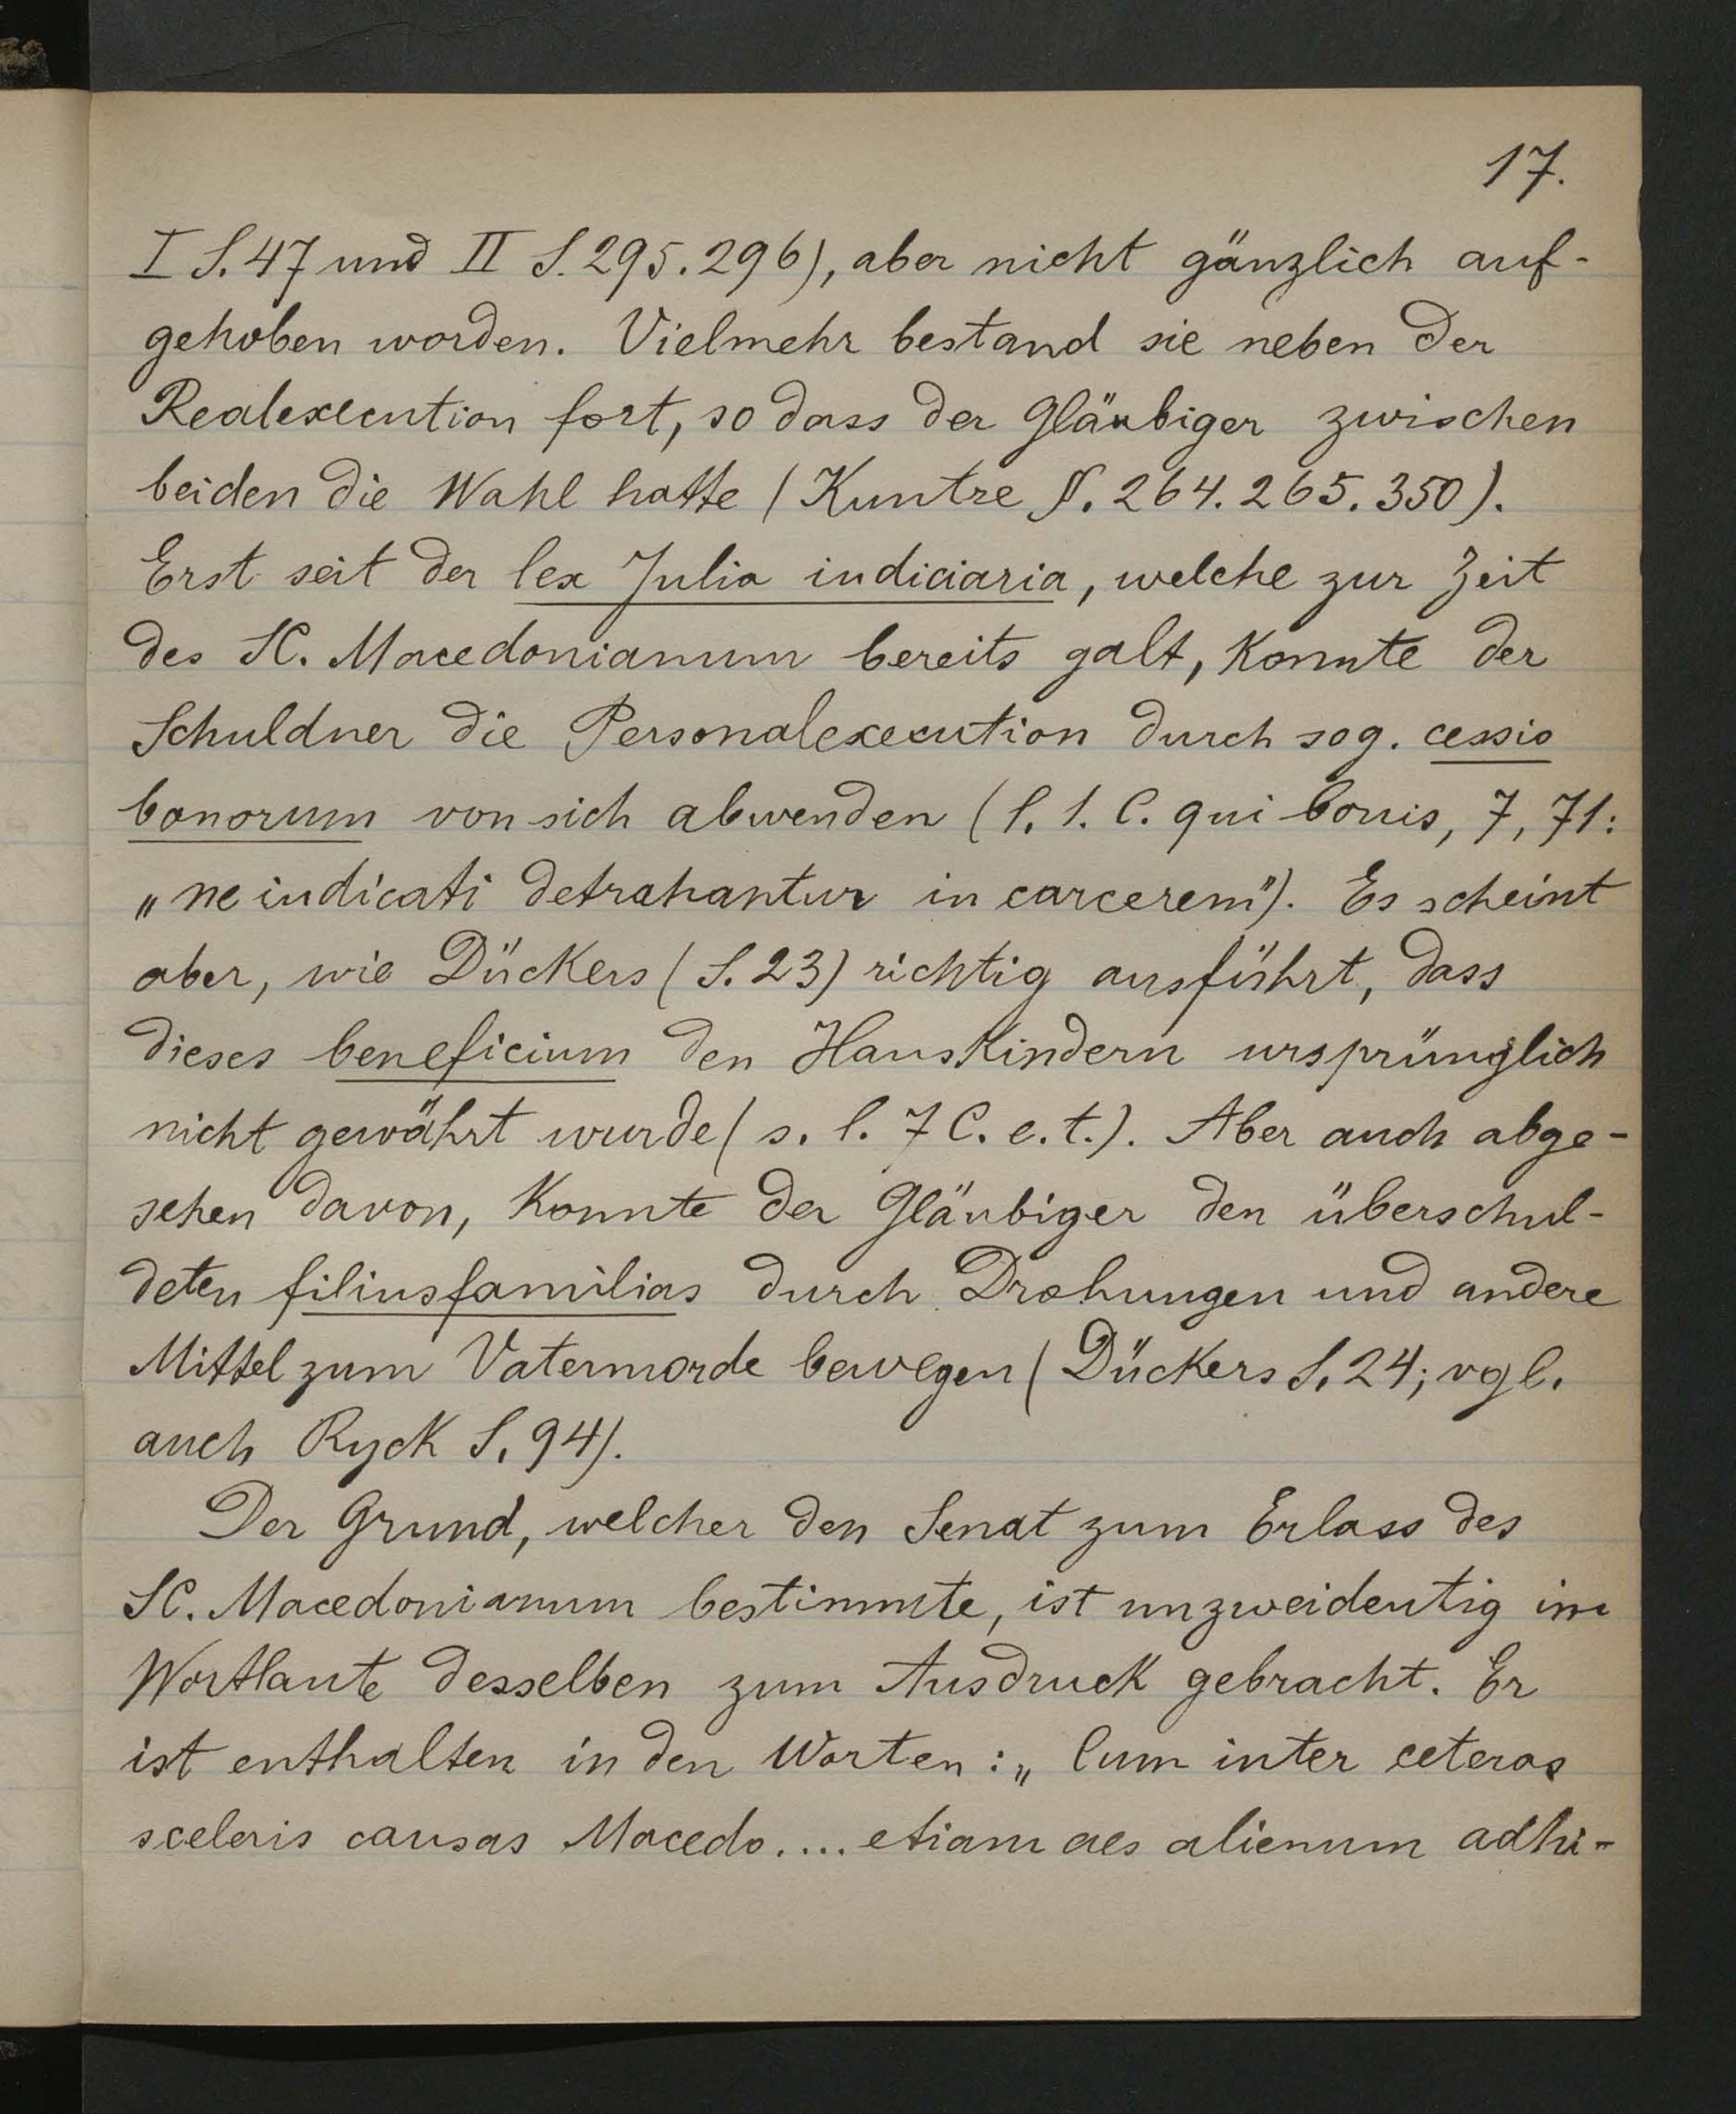 17.
I S. 47 und II S. 295. 296), aber nicht gänzlich auf-
gehoben worden. Vielmehr bestand sie neben der
Realexecution fort, so dass der Gläubiger zwischen
beiden die Wahl hatte (Kuntze §. 264. 265. 350).
Erst seit der lex Julia iudiciaria, welche zur Zeit
des SC. Macedonianum bereits galt, konnte der
Schuldner die Personalexecution durch sog. cessio
bonorum von sich abwenden (l. 1. C. qui bonis, 7, 71:
„ne iudicati detrahantur in carcerem"). Es scheint
aber, wie Dückers (S. 23) richtig ausführt, dass
dieses beneficium den Hauskindern ursprünglich
nicht gewährt wurde (s. l. 7 C. e. t.). Aber auch abge-
sehen davon, konnte der Gläubiger den überschul-
deten filiusfamilias durch Drohungen und andere
Mittel zum Vatermorde bewegen (Dückers S. 24; vgl.
auch Ryck S. 94).
Der Grund, welcher den Senat zum Erlass des
SC. Macedonianum bestimmte, ist unzweideutig im
Wortlaute desselben zum Ausdruck gebracht. Er
ist enthalten in den Worten: „Cum inter ceteras
sceleris causas Macedo.... etiam aes alienum adhi-